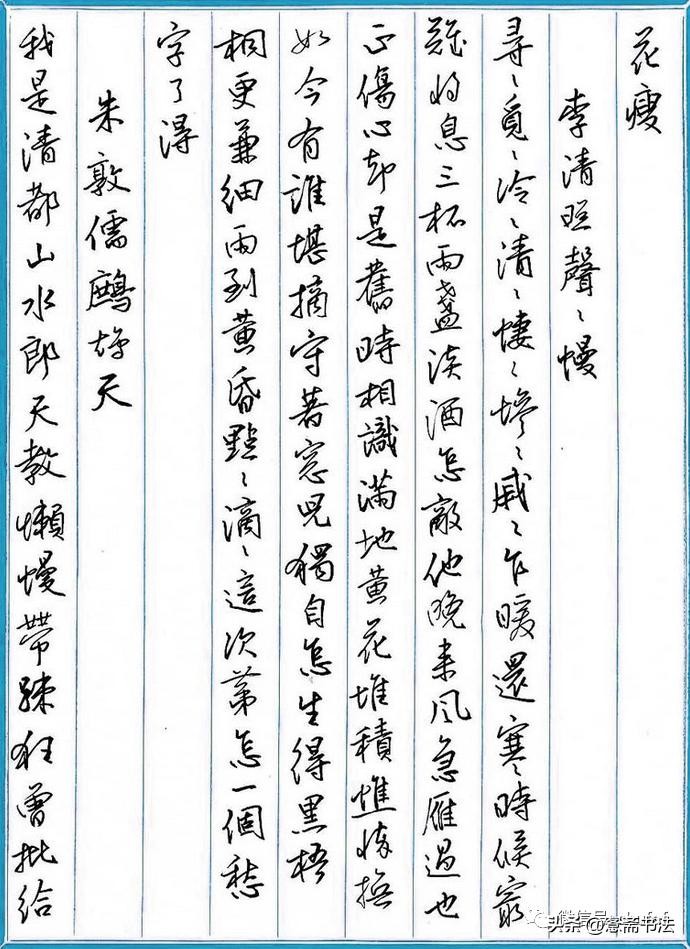 花瘦
李清照聲〻慢
尋〻覓〻冷〻清〻悽〻慘〻戚〻乍暖還寒時候最
難將息三杯兩盞淡酒怎敵他晚來風急雁過也
正傷心却是舊時相識滿地黃花堆積憔悴損
如今有誰堪摘守著窓兒獨自怎生得黑梧
桐更兼細雨到黃昏點〻滴〻這次第怎一個愁
字了得
朱敦儒鷓鴣天
我是清都山水郎天教懶慢帶疎狂曾批給
微信号
头条 @斋书法